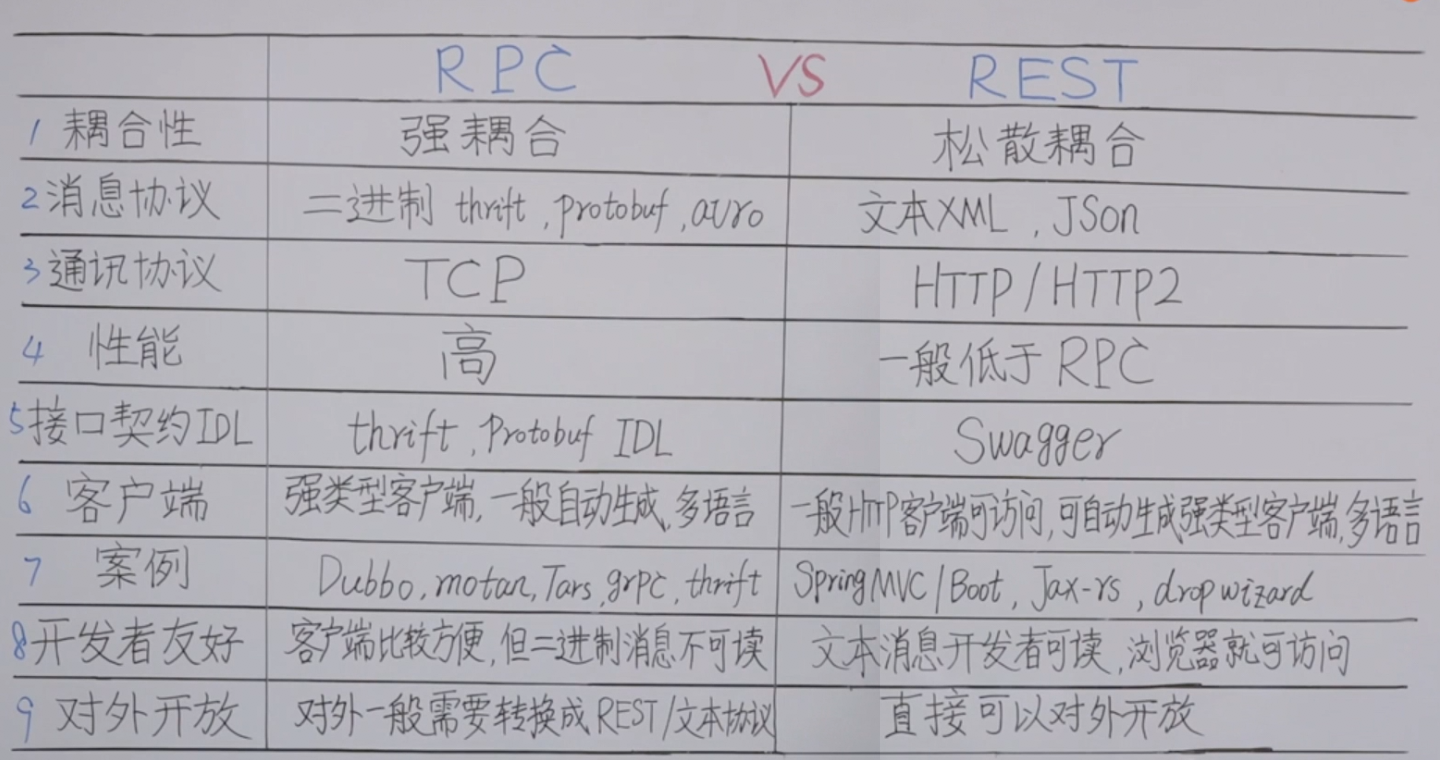 RPC VS REST
1 耦合性 强耦合 松散耦合
2 消息协议 二进制 thrift, protobuf, avro 文本XML, JSon
3 通讯协议 TCP HTTP/HTTP2
4 性能 高 一般低于RPC
5 接口契约IDL thrift, Protobuf IDL Swagger
6 客户端 强类型客户端, 一般自动生成, 多语言 一般HTTP客户端可访问, 可自动生成强类型客户端, 多语言
7 案例 Dubbo, motan, Tars, grpc, thrift Spring MVC/Boot, Jax-rs, dropwizard
8 开发者友好 客户端比较方便, 但二进制消息不可读 文本消息开发者可读, 浏览器就可访问
9 对外开放 对外一般需要转换成REST/文本协议 直接可以对外开放